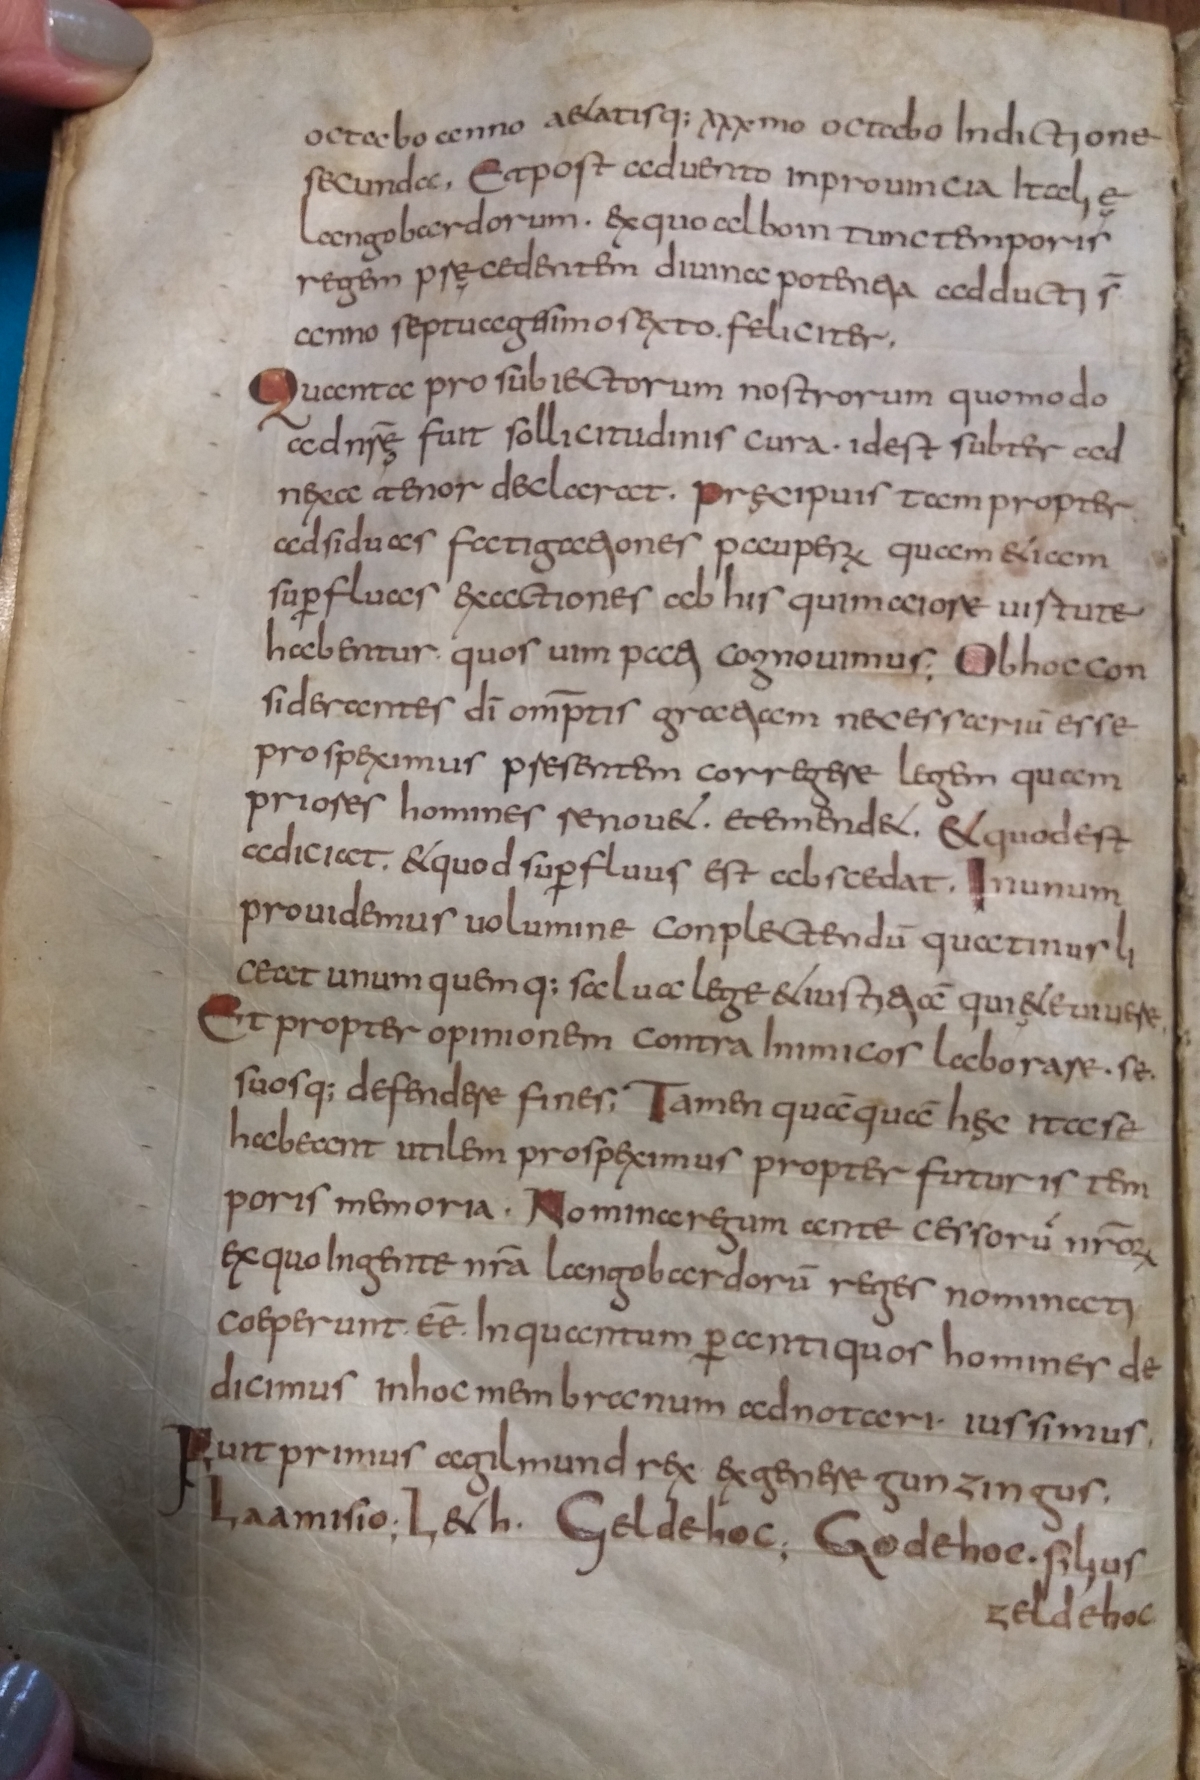 octabo anno aetatisq; xxxmo octabo Indictione
secunda, Et post aduento in prouincia Italię
langobardorum. ex quo alboin tunc temporis
regem pręcedentem diuina potentia adducti s̄
anno septuagesimo sexto. feliciter.
Quanta pro subiectorum nostrorum quomodo
ad nr̄ę fuit sollicitudinis cura. id est subter ad
nexa tenor declarat. Pręcipuis tam propter
adsiduas fatigationes pauperꝝ quam etiam
suꝑfluas exactiones ab his qui maiore uirtute
habentur. quos uim pati cognouimus; Ob hoc con
siderantes dī omp̄tis gratiam necessariū esse
prospeximus presentem corregere legem quam
priores homines renouet. et emendet. & quod est
adiciat. & quod suꝑfluus est abscedat. In unum
prouidemus uolumine conplectendū quatinus li
ceat unumquemq; salua lege & iustitiā quięte uiuere.
Et propter opinionem contra Inimicos laborare. se.
suosq; defendere fines; Tamen quāquā hęc ita se
habeant utilem prospeximus propter futuris tem
poris memoria. Nomina regum ante cessorū nr̄oꝝ
ex quo In gente nr̄a langobardorū reges nominati
coeperunt. ēē. In quantum ꝑ antiquos homines de
dicimus in hoc membranum adnotari. iussimus.
Fuit primus agilmund rex ex genere gunzingus.
Laamisio; Leth. Geldehoc; Godehoc. filius
zeldehoc